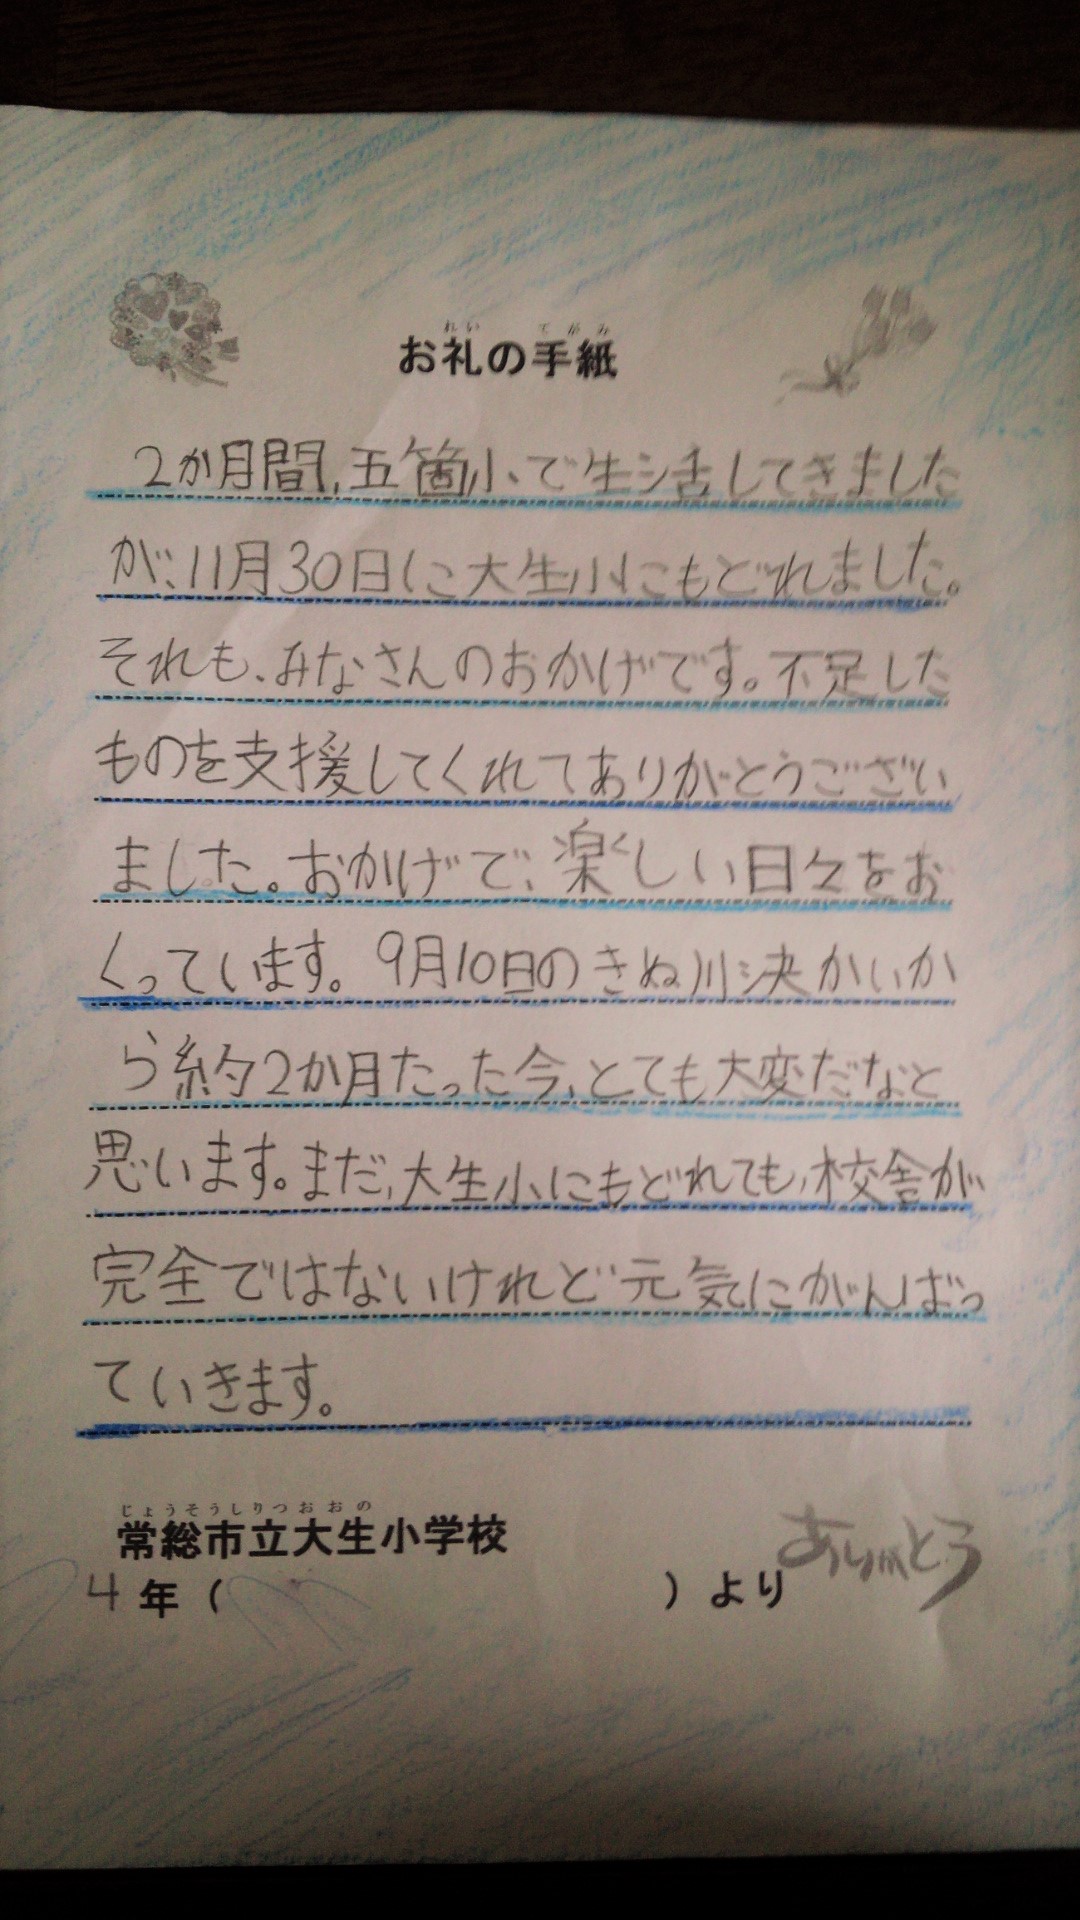 お礼の手紙
2か月間、五箇小で生活してきました
が、11月30日に大生小にもどれました。
それも、みなさんのおかげです。不足した
ものを支援してくれてありがとうござい
ました。おかげで、楽くしい日々をお
くっています。9月10日のきぬ川決かいか
ら約2か月たった今、とても大変だなと
思います。まだ、大生小にもどれても、校舎が
完全ではないけれど元気にがんばっ
ていきます。
じょうそうしりつおおの
常総市立大生小学校
4年( )より
ありがとう